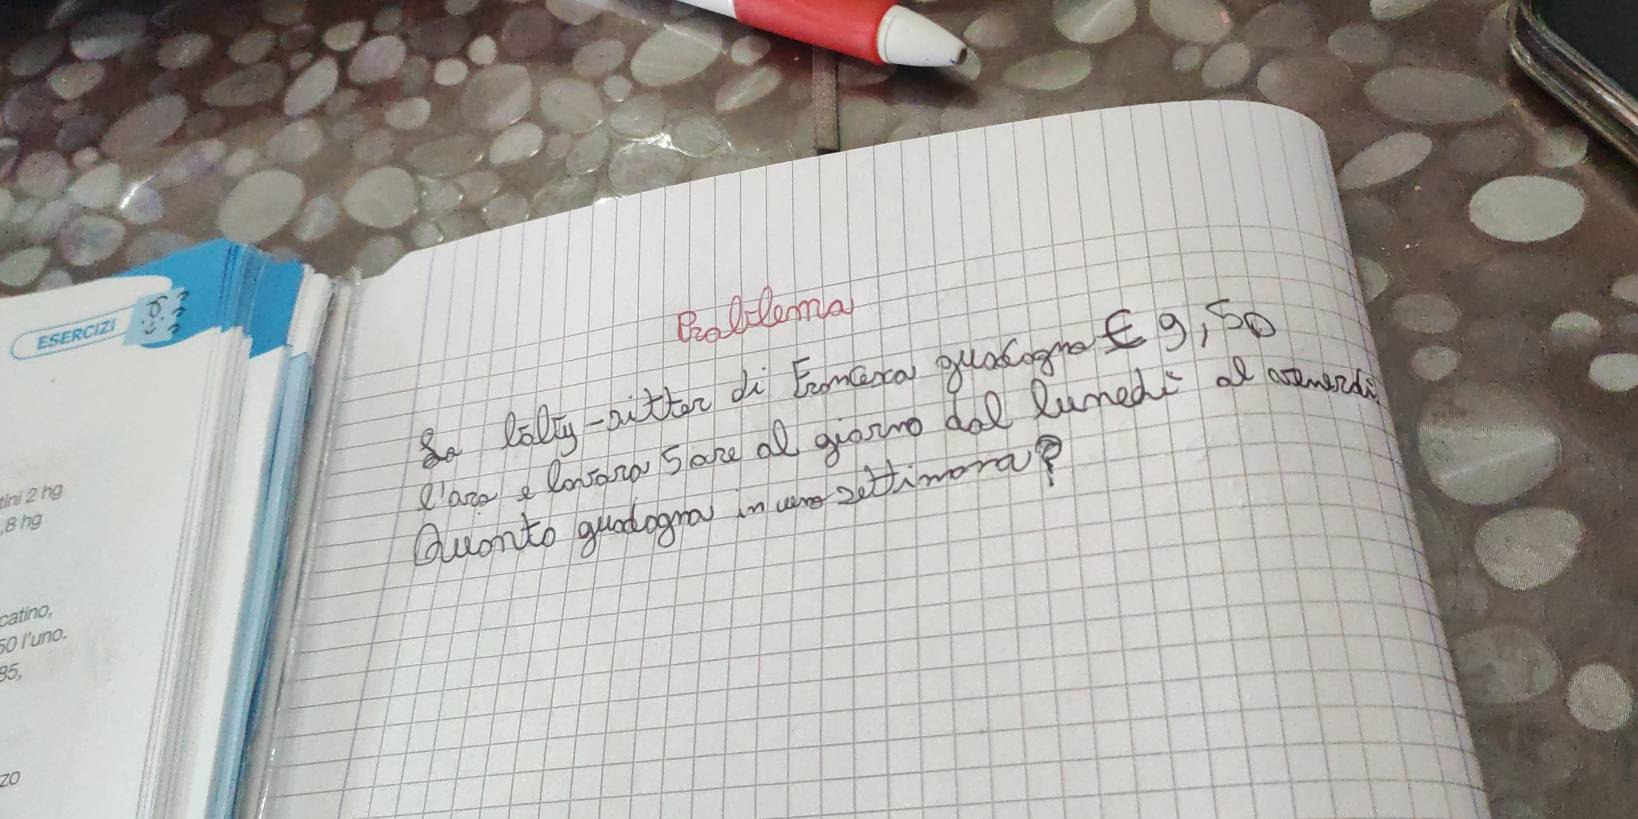 ESERCIZI
tini 2 hg
,8 hg
catino,
50 l'uno.
85,
zo
Problema
La baby-sitter di Francesca guadagna € 9,50
l'ora e lavora 5 ore al giorno dal lunedì al venerdì
Quanto guadagna in una settimana?